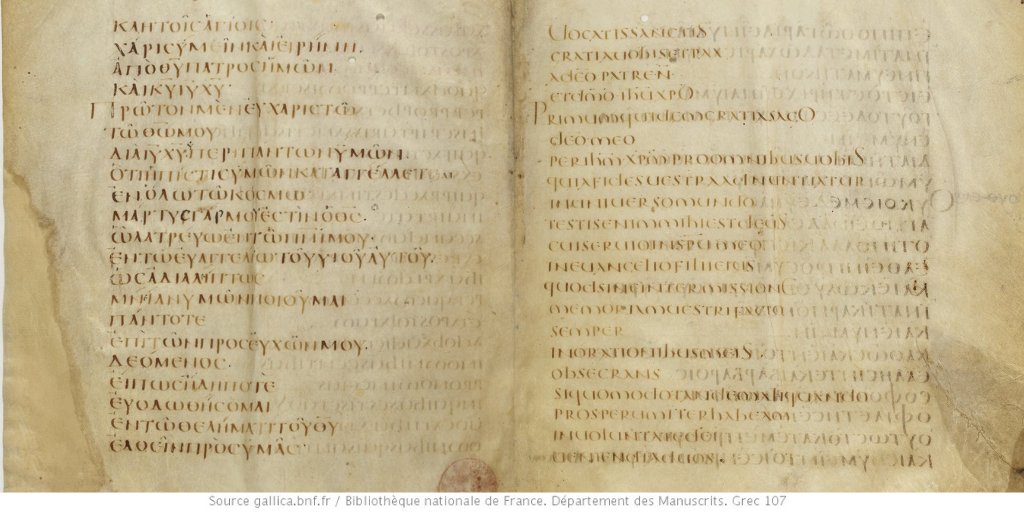 ΚΛΗΤΟΙϹΑΓΙΟΙϹ·
ΧΑΡΙϹΥΜΕΙΝΚΑΙΕΙΡΗΝΗ·
ΑΠΟΘΥΠΑΤΡΟϹΗΜΩΝ·
ΚΑΙΚΥΙΥΧΥ·
ΠΡΩΤΟΝΜΕΝΕΥΧΑΡΙϹΤΩ
ΤΩΘΩΜΟΥ
ΔΙΑΙΥΧΥΠΕΡΙΠΑΝΤΩΝΥΜΩΝ·
ΟΤΙΗΠΙϹΤΙϹΥΜΩΝΚΑΤΑΓΓΕΛΛΕΤΑΙ
ΕΝΟΛΩΤΩΚΟϹΜΩ
ΜΑΡΤΥϹΓΑΡΜΟΥΕϹΤΙΝΟΘϹ·
ΩΛΑΤΡΕΥΩΕΝΤΩΠΝΙΜΟΥ·
ΕΝΤΩΕΥΑΓΓΕΛΙΩΤΟΥΥΙΟΥΑΥΤΟΥ·
ΩϹΑΔΙΑΛΙΠΤΩϹ
ΜΝΙΑΝΥΜΩΝΠΟΙΟΥΜΑΙ
ΠΑΝΤΟΤΕ
ΕΠΙΤΩΝΠΡΟϹΕΥΧΩΝΜΟΥ·
ΔΕΟΜΕΝΟϹ·
ΕΥΟΔΩΘΗϹΟΜΑΙ
ΕΝΤΩΘΕΛΗΜΑΤΙΤΟΥΘΥ
ΕΛΘΕΙΝΠΡΟϹΥΜΑϹ·
UOCATISSANCTIS
GRATIAUOBISETPAX
ADEOPATREN
ETDMOIHUXPO
PRIMUMQUIDEMGRATIASAGO
DEOMEO
PERIHMXPMPROOMNIBUSUOBIS
QUIAFIDESUESTRAADNUNTIATUR
INUNIUERSOMUNDO
TESTISENIMMIHIESTDEUS
CUISERUIOINSPUMEO
INEUANGELIOFILIIEIUS
QUODSINEINTERMISSIONE
MEMORIAMUESTRIFACIO
SEMPER
INORATIONIBUSMEIS
OBSECRANS
SIQUOMODOTANDEMALIQUANDO
PROSPERUMITERHABEAM
INUOLUNTATEDEI
UENIENDIADUOS
Source gallica.bnf.fr / Bibliothèque nationale de France. Département des Manuscrits. Grec 107